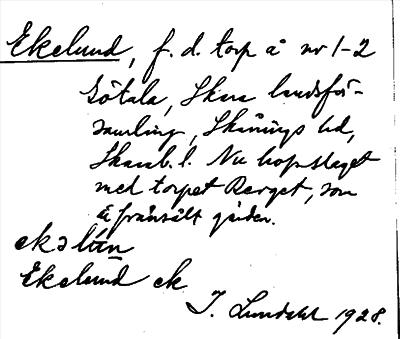 Ekelund, f. d. torp å nr 1-2
Götala, Skara landsför-
samling, Skånings hd,
Skarab. l. Nu hopslaget
med torpet Berget, som
är frånsålt gården.
ekəlún
Ekelund ek
J. Lundahl 1928.